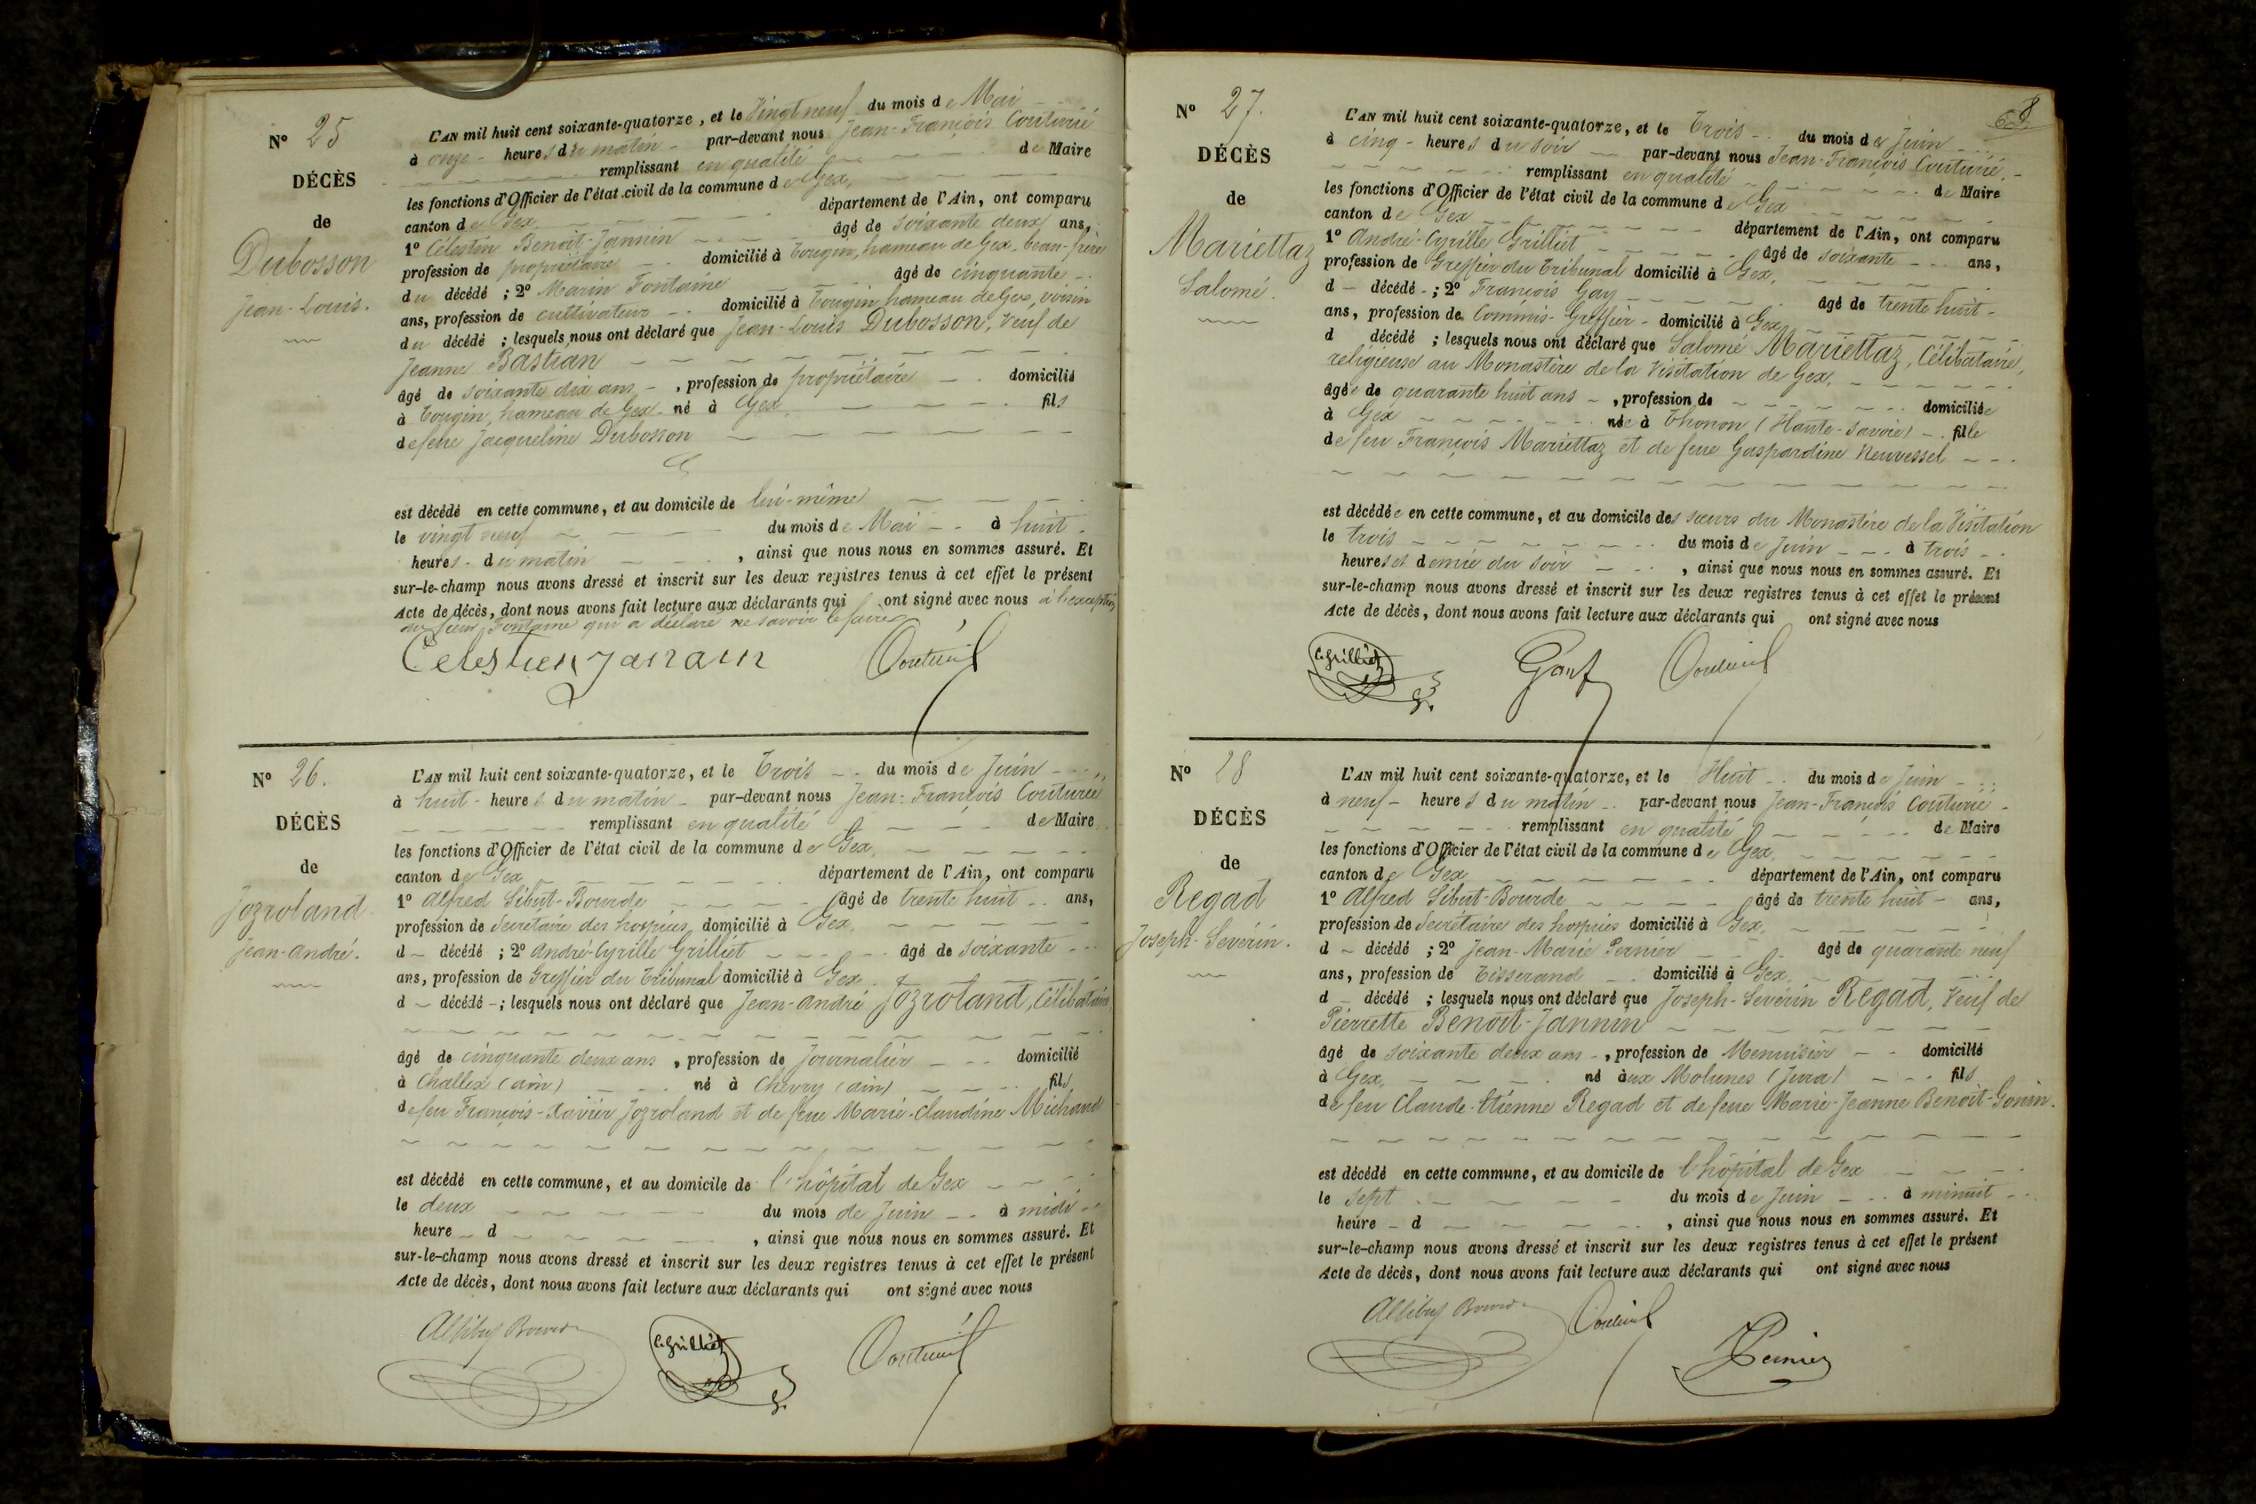 Nº 25
DÉCÈS
de
Dubosson
Jean-Louis.
L'AN mil huit cent soixante-quatorze, et le Vingt neuf du mois de Mai
à onze heures du matin par-devant nous Jean-François Couturié
remplissant en qualité de Maire
les fonctions d'Officier de l'état civil de la commune de Gex,
canton de Gex département de l'Ain, ont comparu
1º Célestin Benoit-Jannin âgé de soixante deux ans,
profession de propriétaire domicilié à Tougin, hameau de Gex, beau-frère
du décédé ; 2º Marin Fontaine âgé de cinquante
ans, profession de cultivateur domicilié à Tougin, hameau de Gex, voisin
du décédé ; lesquels nous ont déclaré que Jean-Louis Dubosson, Veuf de
Jeanne Bastian
âgé de soixante dix ans, profession de propriétaire domicilié
à Tougin, hameau de Gex né à Gex fils
de feue Jacqueline Dubosson
est décédé en cette commune, et au domicile de lui-même
le vingt neuf du mois de Mai à huit
heures du matin, ainsi que nous nous en sommes assuré. Et
sur-le-champ nous avons dressé et inscrit sur les deux registres tenus à cet effet le présent
Acte de décès, dont nous avons fait lecture aux déclarants qui ont signé avec nous à l'exception
du sieur Fontaine qui a déclaré ne savoir le faire
Celestien Janain Couturié
Nº 26.
DÉCÈS
de
Jozroland
Jean-André.
L'AN mil huit cent soixante-quatorze, et le Trois du mois de Juin
à huit heures du matin par-devant nous Jean-François Couturié
remplissant en qualité de Maire
les fonctions d'Officier de l'état civil de la commune de Gex,
canton de Gex département de l'Ain, ont comparu
1º Alfred Sibut-Bourde âgé de trente huit ans,
profession de Secrétaire des hospices domicilié à Gex,
d décédé ; 2º André-Cyrille Grilliet âgé de soixante
ans, profession de Greffier du Tribunal domicilié à Gex
d décédé ; lesquels nous ont déclaré que Jean-André Jozroland, Célibataire
âgé de cinquante deux ans, profession de Journalier domicilié
à Challex (ain) né à Chevry (ain) fils
de feu François-Xavier Jozroland et de feue Marie-Claudine Michaud
est décédé en cette commune, et au domicile de l'hôpital de Gex
le deux du mois de Juin à midi
heure d, ainsi que nous nous en sommes assuré. Et
sur-le-champ nous avons dressé et inscrit sur les deux registres tenus à cet effet le présent
Acte de décès, dont nous avons fait lecture aux déclarants qui ont signé avec nous
Grilliet Couturié
Nº 27.
DÉCÈS
de
Mariettaz
Salomé.
L'AN mil huit cent soixante-quatorze, et le Trois du mois de Juin
à cinq heures du soir par-devant nous Jean-François Couturié
remplissant en qualité de Maire
les fonctions d'Officier de l'état civil de la commune de Gex
canton de Gex département de l'Ain, ont comparu
1º André-Cyrille Grilliet âgé de soixante ans,
profession de Greffier du Tribunal domicilié à Gex,
d décédé ; 2º François Gay âgé de trente huit
ans, profession de Commis-Greffier domicilié à Gex
d décédé ; lesquels nous ont déclaré que Salomé Mariettaz, Célibataire,
religieuse au Monastère de la Visitation de Gex,
âgée de quarante huit ans, profession de domiciliée
à Gex née à Thonon (Haute-Savoie) fille
de feu François Mariettaz et de feue Gaspardine Neuvessel
est décédée en cette commune, et au domicile des sœurs du Monastère de la Visitation
le trois du mois de Juin à trois
heures et demie du soir, ainsi que nous nous en sommes assuré. Et
sur-le-champ nous avons dressé et inscrit sur les deux registres tenus à cet effet le présent
Acte de décès, dont nous avons fait lecture aux déclarants qui ont signé avec nous
Grilliet Gay Couturié
Nº 28
DÉCÈS
de
Regad
Joseph-Sevérin.
L'AN mil huit cent soixante-quatorze, et le Huit du mois de Juin
à neuf heures du matin par-devant nous Jean-François Couturié
remplissant en qualité de Maire
les fonctions d'Officier de l'état civil de la commune de Gex,
canton de Gex département de l'Ain, ont comparu
1º Alfred Sibut-Bourde âgé de trente huit ans,
profession de Secrétaire des hospices domicilié à Gex,
d décédé ; 2º Jean-Marie Pernier âgé de quarante neuf
ans, profession de Tisserand domicilié à Gex,
d décédé ; lesquels nous ont déclaré que Joseph-Sevérin Regad, Veuf de
Pierrette Benoit-Jannin
âgé de soixante deux ans, profession de Menuisier domicilié
à Gex, né aux Molunes (Jura) fils
de feu Claude-Etienne Regad et de feue Marie-Jeanne Benoit-Gonin.
est décédé en cette commune, et au domicile de l'hôpital de Gex
le sept du mois de Juin à minuit
heure d, ainsi que nous nous en sommes assuré. Et
sur-le-champ nous avons dressé et inscrit sur les deux registres tenus à cet effet le présent
Acte de décès, dont nous avons fait lecture aux déclarants qui ont signé avec nous
Couturié
Pernier